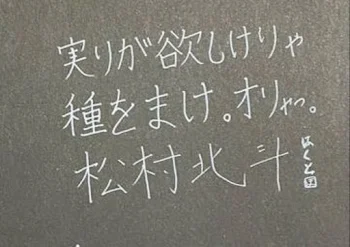 実りが欲しけりゃ
種をまけ。オリャっ。
松村北斗
ほくと国